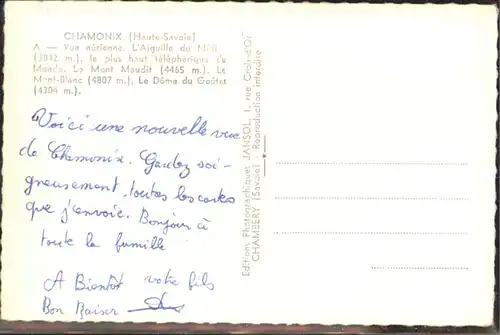 CHAMONIX (Haute-Savoie)
A — Vue aérienne. L'Aiguille du Midi
(3842 m.), le plus haut téléphérique du
Monde. Le Mont Maudit (4465 m.). Le
Mont-Blanc (4807 m.). Le Dôme du Goûter
(4304 m.).
Voici une nouvelle vue
de Chamonix. Gardez soi-
gneusement, toutes les cartes
que j'envoie. Bonjour à
toute la famille
A Bientôt votre fils
Bon Baiser
Editions Photographiques JANSOL, 1, rue Croix-d'Or
CHAMBERY (Savoie) - Reproduction interdite